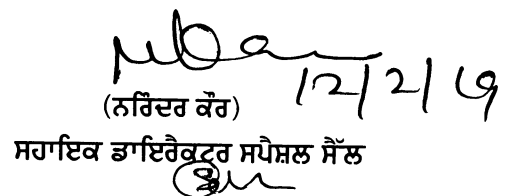 12/2/19
(ਨਰਿੰਦਰ ਕੌਰ)
ਸਹਾਇਕ ਡਾਇਰੈਕਟਰ ਸਪੈਸ਼ਲ ਸੈੱਲ